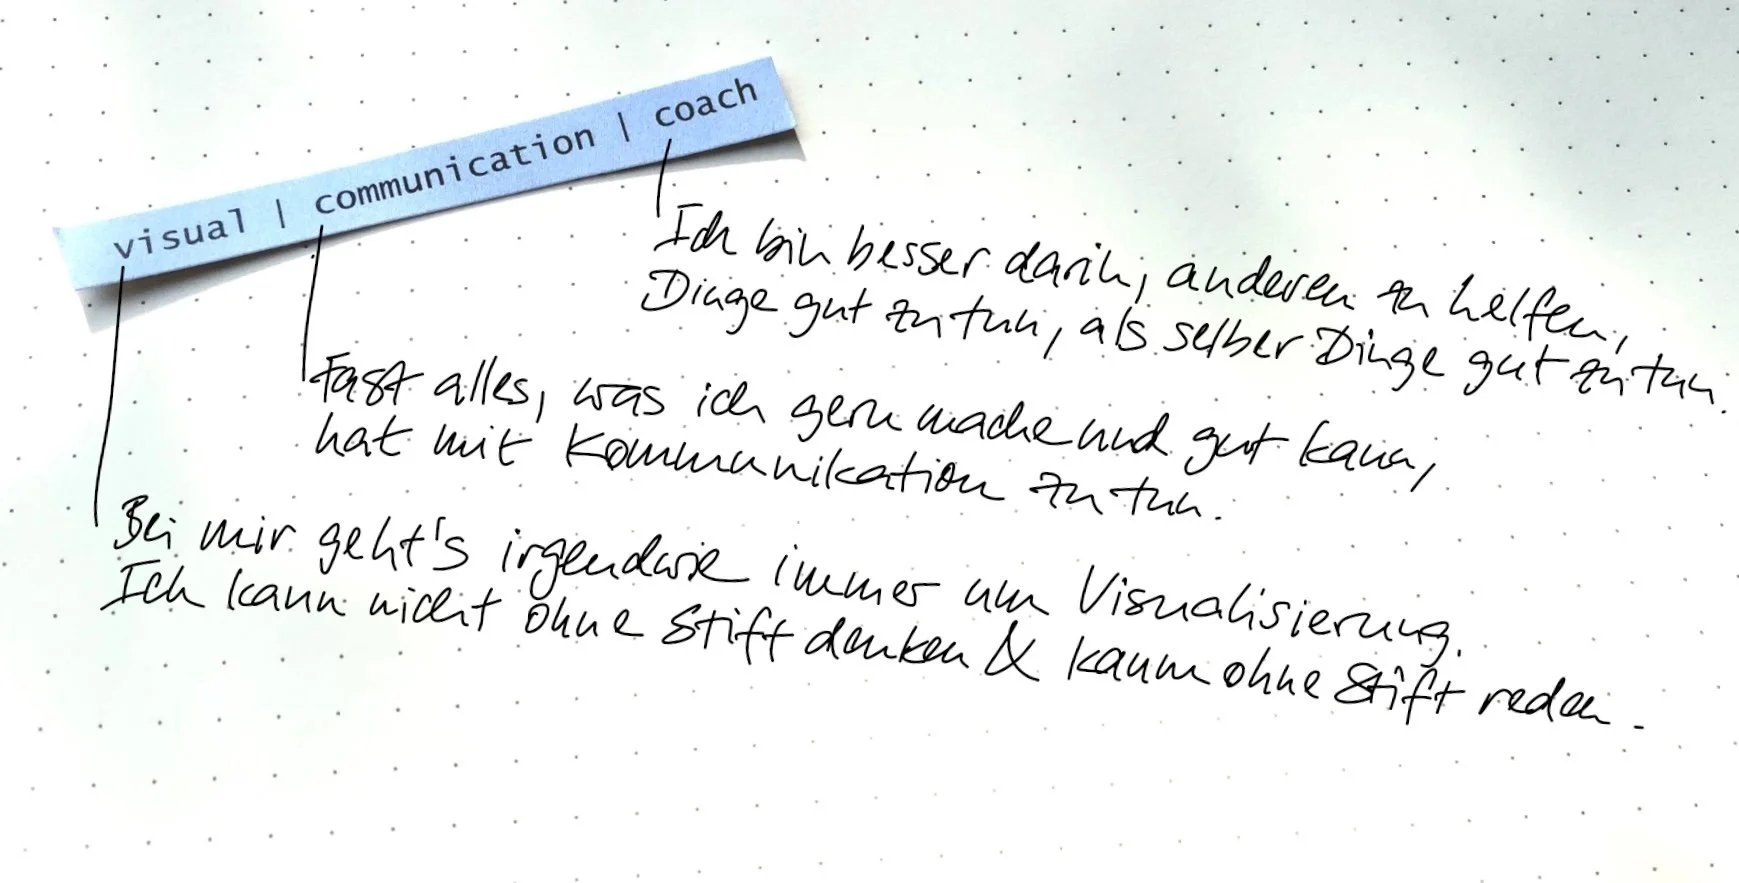 visual | communication | coach
Ich bin besser darin, anderen zu helfen,
Dinge gut zu tun, als selber Dinge gut zu tun.
Fast alles, was ich gern mache und gut kann,
hat mit Kommunikation zu tun.
Bei mir geht's irgendwie immer um Visualisierung.
Ich kann nicht ohne Stift denken & kaum ohne Stift reden.